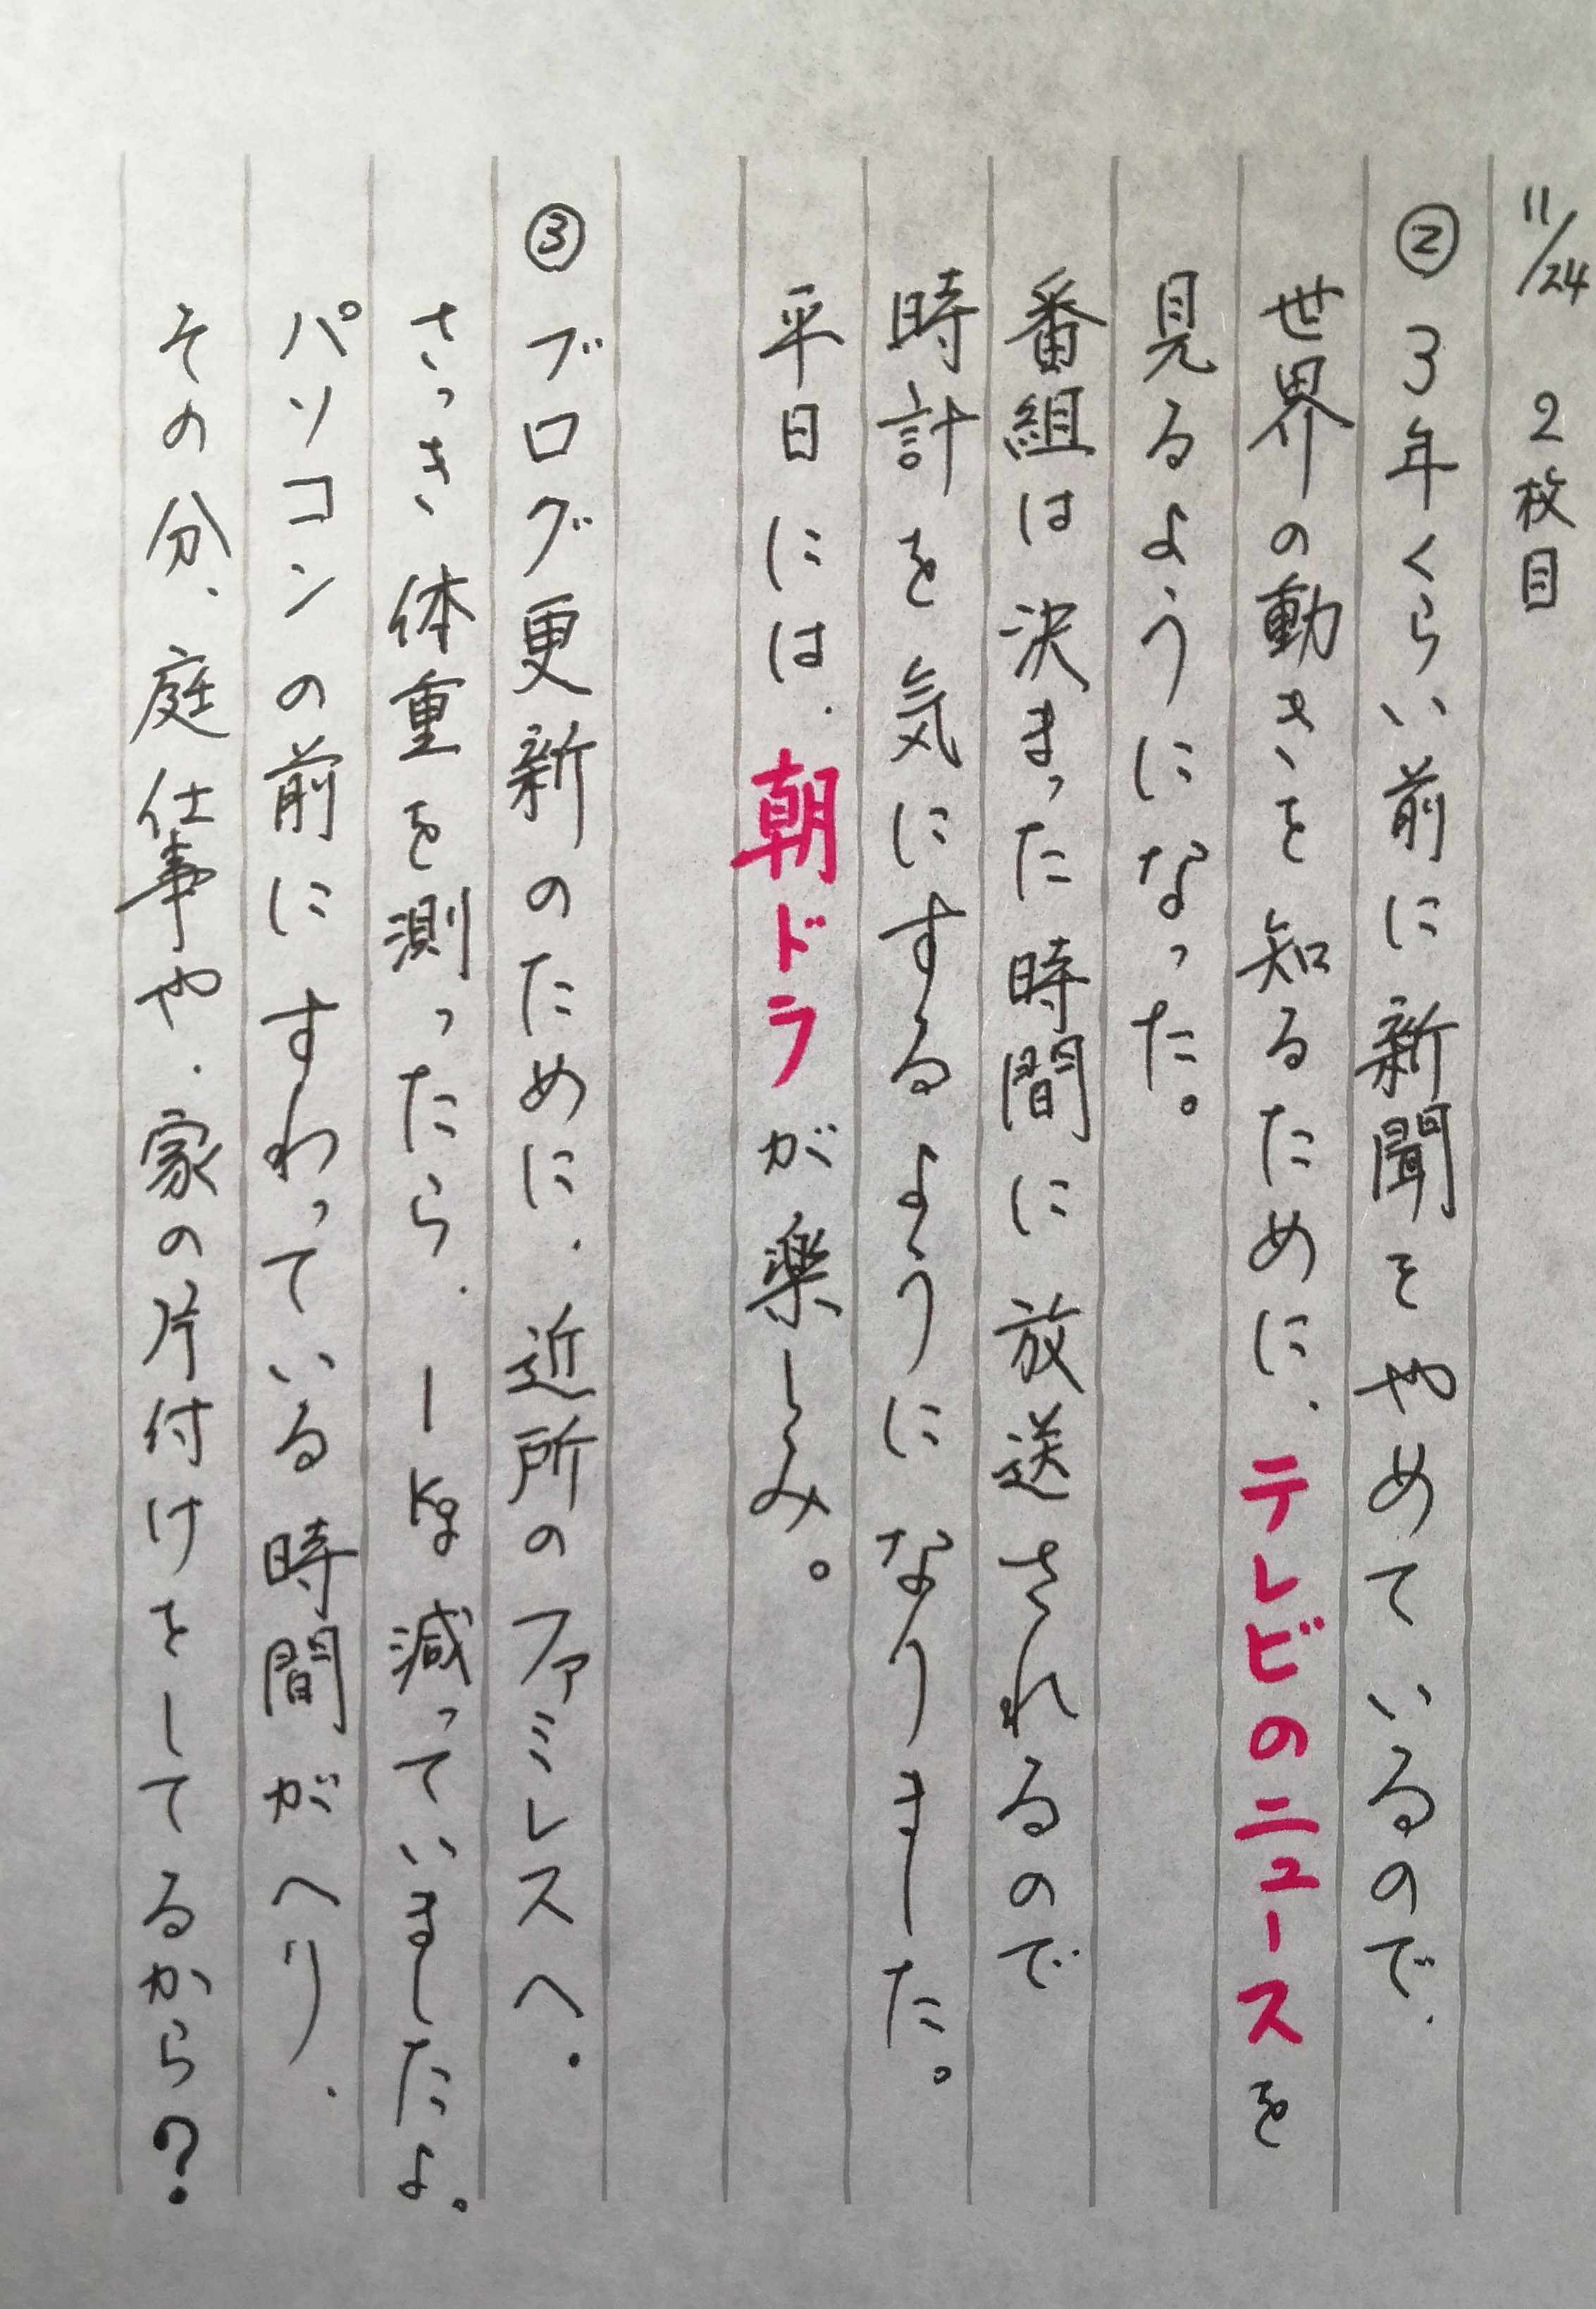 11/24 2枚目
② 3年くらい前に新聞をやめているので、
世界の動きを知るために、テレビのニュースを
見るようになった。
番組は決まった時間に放送されるので
時計を気にするようになりました。
平日には、朝ドラが楽しみ。
③ ブログ更新のために、近所のファミレスへ。
さっき体重を測ったら、1kg減っていましたよ。
パソコンの前にすわっている時間がへり、
その分、庭仕事や、家の片付けをしてるから?